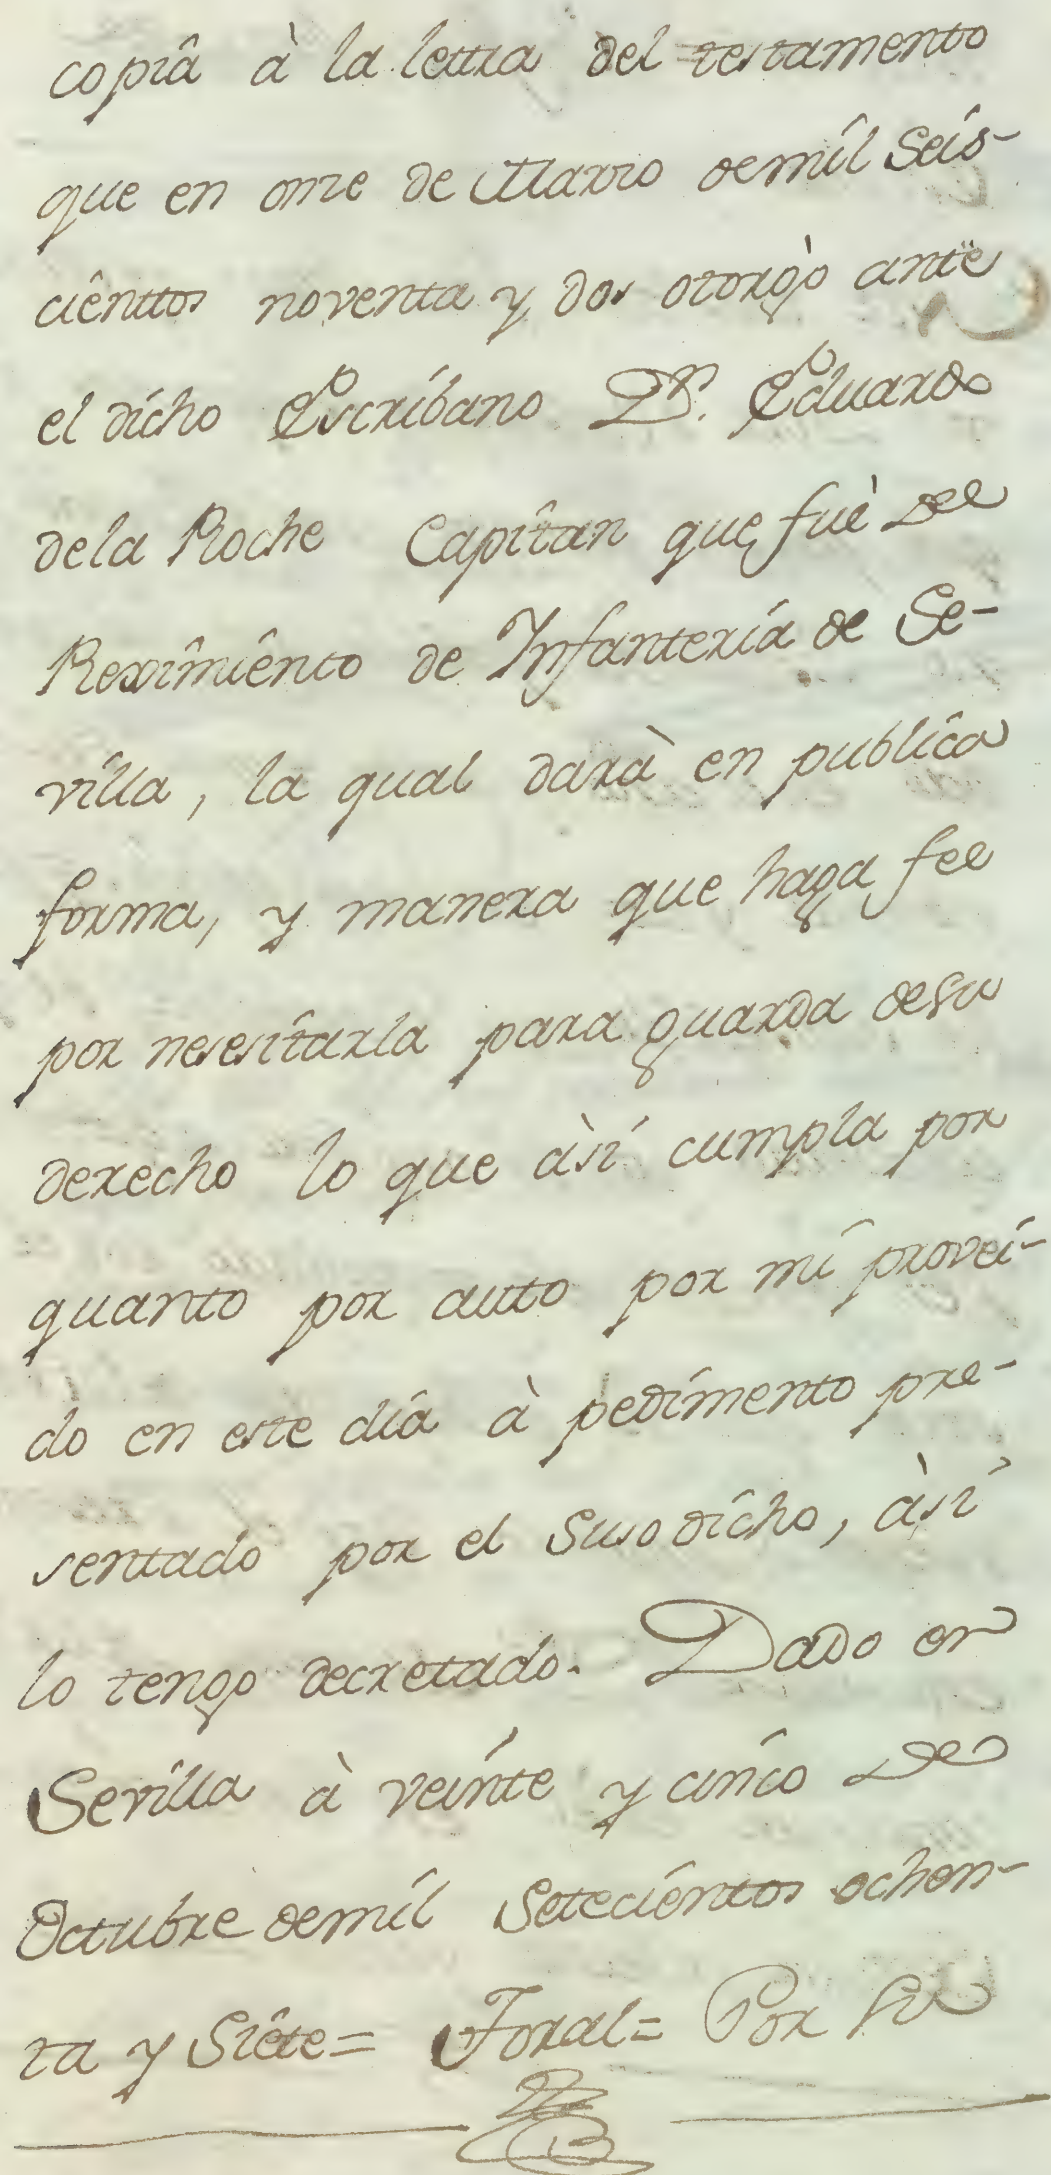 copiâ à la lettra del testamento
que en onze de Marzo de mil Seis-
ciênttos noventa y dos otorgò ante
el dicho Escribano Dn. Eduardo
dela Roche Capîtan que fuè del
Reximiênto de Infanteria de Se-
villa, la qual darà en publica
forma, y manera que haga fee
por nesesitarla para guarda desu
derecho lo que àsi cumpla por
quanto por autto por mi provei-
do en este dia à pedimento pre-
sentado por el Susodicho, àsi
lo tengo decretado. Dado en
Sevilla à veinte y cinco de
Octubre demil Setecienttos ochen-
ta y Siête= Toral= Por Su